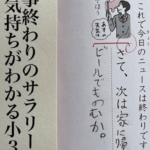 事終わりのサラリー
気持ちがわかる小3
これで今日のニュースは終わりです
さて、次は家に帰
ビールでものむか。